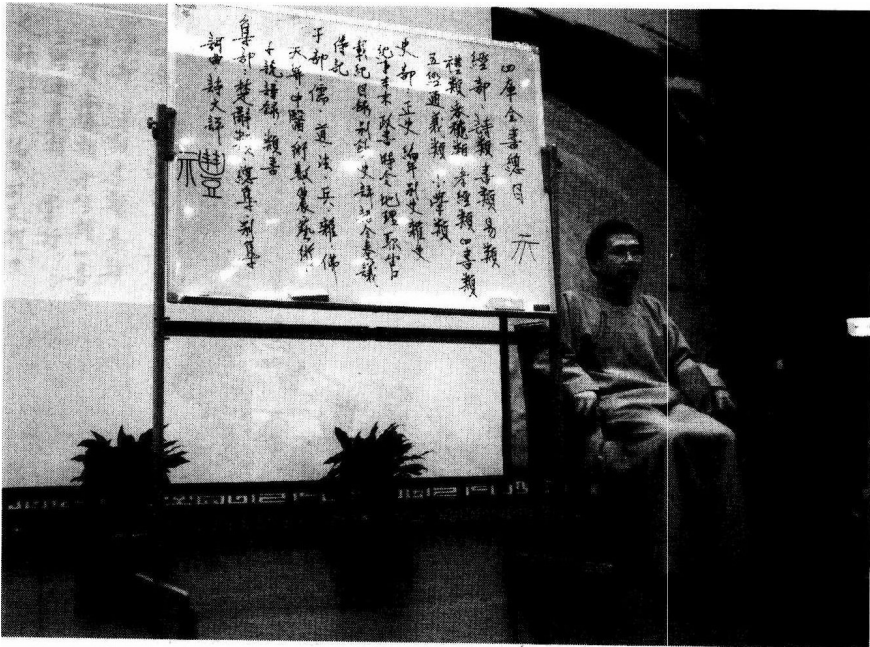 四庫全書總目 示
經部：詩類 書類 易類
禮類 春穐類 孝經類 四書類
五經通義類 小學類
史部：正史 編年 別史 雜史
紀事本末 政書 時令 地理 职官
載紀 目錄 別 史評 詔令奏議
傳記
子部：儒 道 法 兵 雜 佛
天算 中醫 術數 農 藝術
小說語錄 類書
集部：楚辭 總集 別集
詞曲 詩文評
豊
示